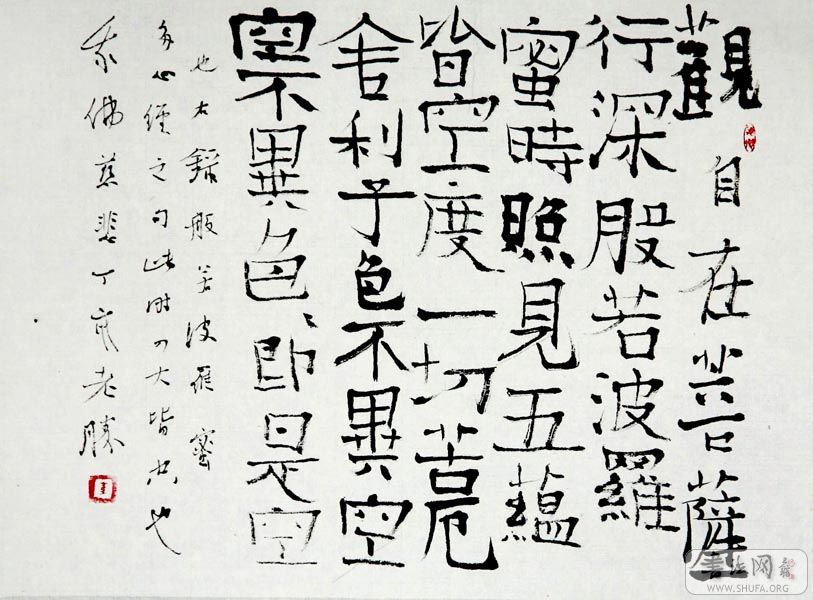 觀自在菩薩
行深般若波羅
蜜時照見五蘊
皆空度一切苦厄
舍利子色不異空
空不異色〻即是空
也右錄般若波羅蜜
多心經之句此時四大皆空也
我佛慈悲丁亥老勝
书法网
WWW.SHUFA.ORG